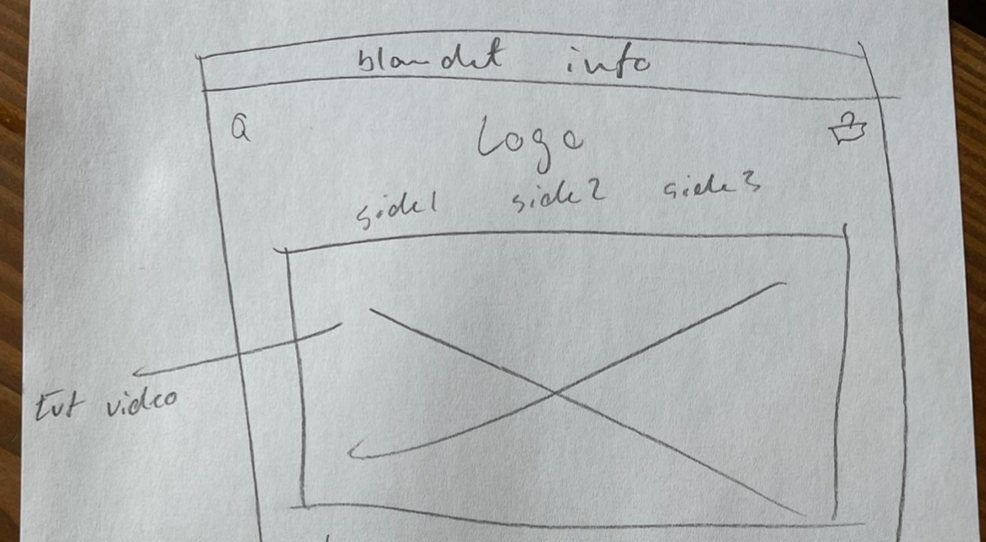 blandet info
Logo
side1 side2 side3
Evt video